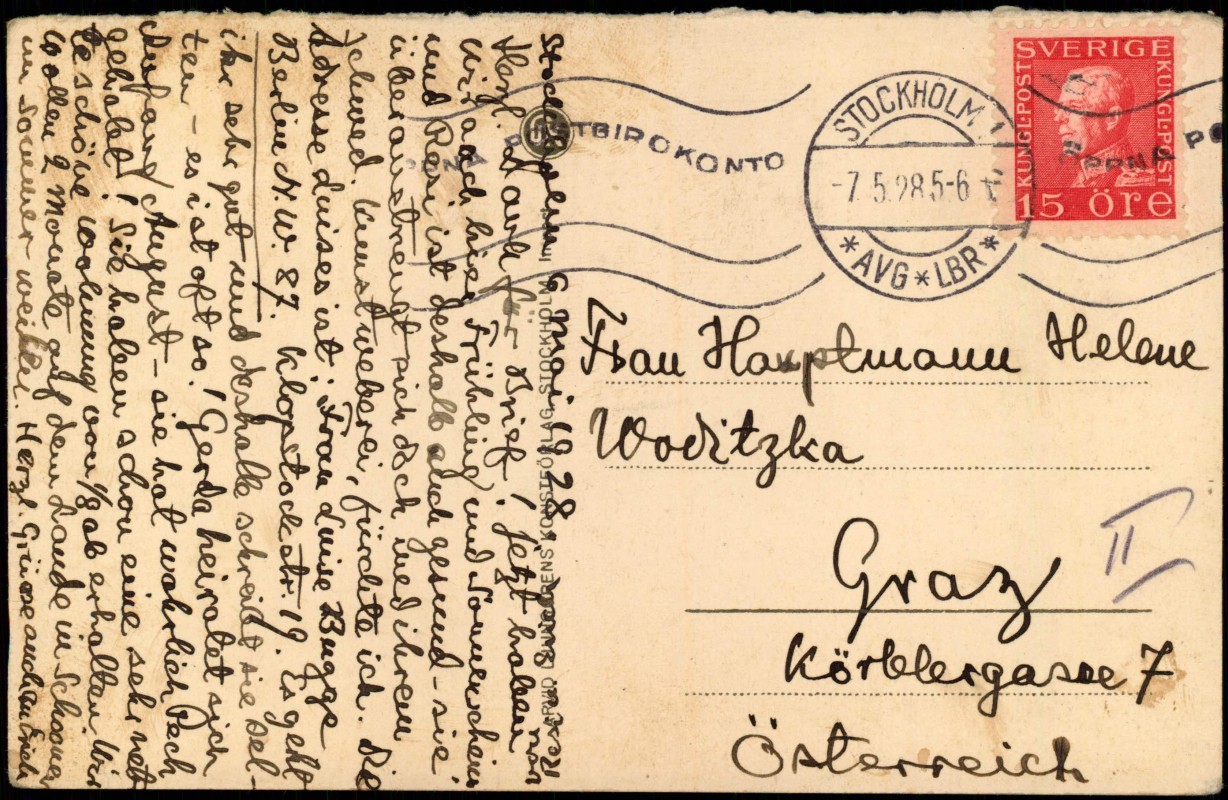 Stockholm 6 Mai 1928
Herzl. Dank für Brief! Jetzt haben
wir auch hier Frühling und Sonnenschein
und Resi ist deshalb auch gesund - sie
überanstrengt sich doch med ihrem
schwed. Kunstweberei, fürchte ich. Die
Adresse Luises ist: Frau Luise Bugge
Berlin N.W. 87. Klopstockstr. 19. Es geht
ihr sehr gut und deshalb schreibt sie sel-
ten - es ist oft so! Gerda heiratet sich
Anfang August - sie hat wahrlich Pech
gehabt! Sie haben schon eine sehr net
te schöne wohnung von 1/8 ab erhalten. Wir
wollen 2 Monate auf dem Lande in
im Sommer weilen. Herzl. Grüsse auch an Erich
STOCKHOLM 1
-7.5.28 5-6
*AVG*LBR*
POSTGIROKONTO
ÖPPNA
SVERIGE
KUNGL·POST
KUNGL·POST
15 ÖRE
Frau Hauptmann Helene
Woditzka
Graz
Körblergasse 7
Österreich
II